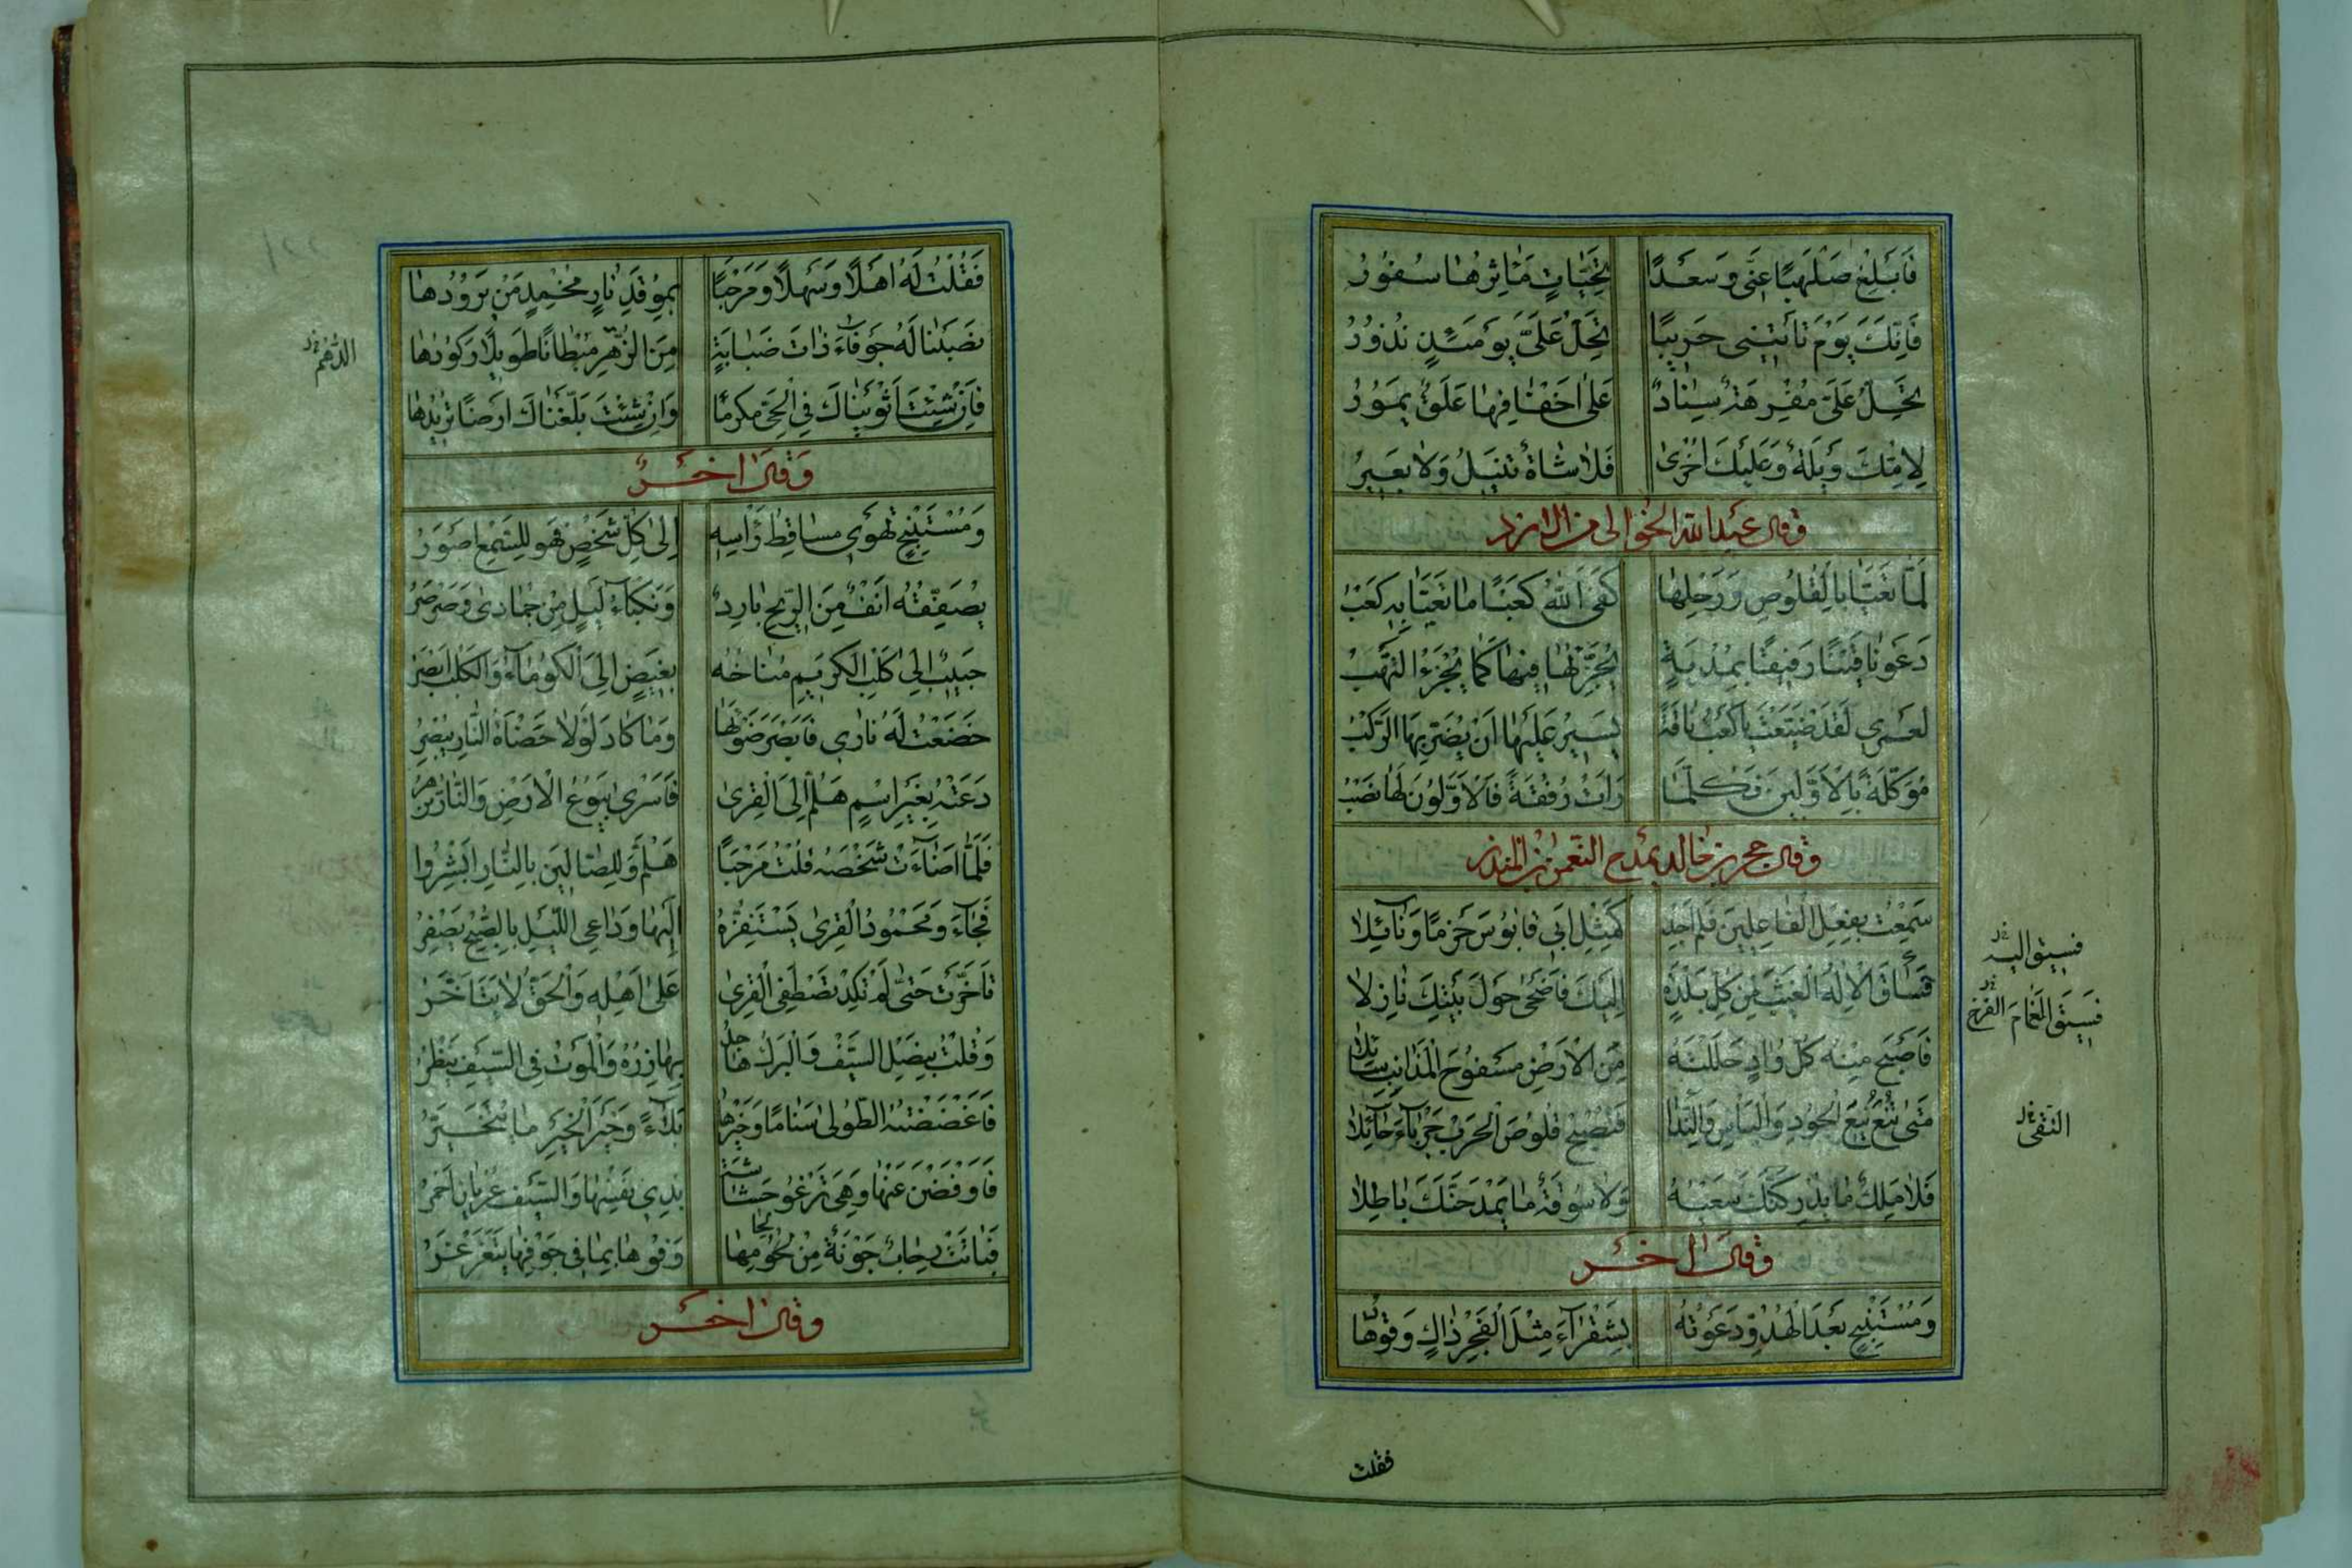 فَاَبْلِغْ صَلْهَبًا عَنِّى وَسَعْدًا تَحِيَّاتٍ مَاٰثِرُهَا سُفُوْرُ
فَاِنَّكَ يَوْمَ تَأْتِيْنِى حَرِيْبًا تَحِلُّ عَلَىَّ يَوْمَئِذٍ نُذُوْرُ
تَحِلُّ عَلَىَّ مُفْرِهَةٌ سِنَادٌ عَلٰى اَخْفَافِهَا عَلَقٌ يَمُوْرُ
لِاُمِّكَ وَيْلَةٌ وَعَلَيْكَ اُخْرٰى فَلَا شَاةٌ تُنِيْلُ وَلَا بَعِيْرُ
وقال عبد الله الخوالى من الازد
لَمَّا تَعَيَّا بِالْقَلُوْصِ وَرَحْلِهَا كَفَى اللّٰهُ كَعْبًا مَا تَعَيَّا بِهِ كَعْبُ
دَعَوْنَا فَتًى رَفِيْقًا بِمُدْيَةٍ يُجَزِّئُهَا فِيْهَا كَمَا يُجْزَءُ النَّهْبُ
لَعَمْرِى لَقَدْ ضَيَّعْتَ يَا كَعْبُ نَاقَةً يَسِيْرٌ عَلَيْهَا اَنْ يُضَرَّ بِهَا الرَّكْبُ
مُوَكَّلَةً بِالْاَوَّلِيْنَ فَكُلَّمَا رَاَتْ رُفْقَةً فَالْاَوَّلُوْنَ لَهَا نَصْبُ
وقال حجر بن خالد يمدح النعمن بن المنذر
سَمِعْتُ بِفِعْلِ الْفَاعِلِيْنَ فَلَمْ اَجِدْ كَمِثْلِ اَبِى قَابُوْسَ حَزْمًا وَنَائِلَا
فَسَاقَ الْاِلٰهُ الْغَيْثَ مِنْ كُلِّ بَلْدَةٍ اِلَيْكَ فَاَضْحٰى حَوْلَ بَيْتِكَ نَازِلَا
فسيق اليه
فسيق الغمام الغر
فَاَصْبَحَ مِنْهُ كُلُّ وَادٍ حَلَلْتَهُ مِنَ الْاَرْضِ مَسْفُوْحَ الْمَذَانِبِ سَائِلَا
مَتٰى تُنْعَ يُنْعَ الْجُوْدُ وَالْبَاْسُ وَالنَّدَا فَتُصْبِحُ قَلُوْصُ الْحَرْبِ جَرْبَاءَ حَائِلَا
التقى
فَلَا مَلِكٌ مَا يُدْرِكَنَّكَ سَعْيُهُ وَلَا سُوْقَةٌ مَا يَمْدَحَنَّكَ بَاطِلَا
وقال اٰخر
وَمُسْتَنْبِحٍ بَعْدَ الْهُدُوِّ دَعَوْتُهُ بِشَقْرَاءَ مِثْلَ الْفَجْرِ ذَاكٍ وَقُوْدُهَا
فقلت
فَقُلْتُ لَهُ اَهْلًا وَسَهْلًا وَمَرْحَبًا بِمُوْقِدِ نَارٍ مُحْمِدٍ مَنْ يَرُوْدُهَا
نَصَبْنَا لَهُ جَوْفَاءَ ذَاتَ ضَبَابَةٍ مِنَ الزُّهْرِ مِبْطَانًا طَوِيْلًا رُكُوْدُهَا
الدُّهْمِ
فَاِنْ شِئْتَ اَثْوَيْنَاكَ فِى الْحَىِّ مُكْرَمًا وَاِنْ شِئْتَ بَلَّغْنَاكَ اَرْضًا تُرِيْدُهَا
وقال اٰخر
وَمُسْتَنْبِحٍ تَهْوِى مَسَاقِطُ رَاْسِهِ اِلٰى كُلِّ شَخْصٍ فَهُوَ لِلسَّمْعِ اَصْوَرُ
يُصَفِّقُهُ اَنْفٌ مِنَ الرِّيْحِ بَارِدٌ وَنَكْبَاءُ لَيْلٍ مِنْ جُمَادٰى وَصَرْصَرُ
حَبِيْبٌ اِلٰى كَلْبِ الْكَرِيْمِ مُنَاخُهُ بَغِيْضٌ اِلَى الْكَوْمَاءِ وَالْكَلْبُ اَبْصَرُ
حَضَعْتُ لَهُ نَارِى فَاَبْصَرَ ضَوْئَهَا وَمَا كَادَ لَوْلَا حَضْاَةُ النَّارِ يُبْصِرُ
دَعَتْهُ بِغَيْرِ اسْمٍ هَلُمَّ اِلَى الْقِرٰى فَاَسْرٰى يَبُوْعُ الْاَرْضَ وَالنَّارُ تَزْهَرُ
فَلَمَّا اَضَاءَتْ شَخْصَهُ قُلْتُ مَرْحَبًا هَلُمَّ وَلِلصَّالِيْنَ بِالنَّارِ اَبْشِرُوا
فَجَاءَ وَمَحْمُوْدُ الْقِرٰى يَسْتَفِزُّهُ اِلَيْهَا وَدَاعِى اللَّيْلِ بِالصُّبْحِ يَصْفِرُ
تَاَخَّرْتَ حَتّٰى لَمْ تَكَدْ تَصْطَفِى الْقِرٰى عَلٰى اَهْلِهِ وَالْحَقُّ لَا يَتَاَخَّرُ
وَقُمْتُ بِنَصْلِ السَّيْفِ وَالْبَرْكُ هَاجِدٌ بَهَازِرُهُ وَالْمَوْتُ فِى السَّيْفِ يَنْظُرُ
فَاَعْضَضْتُهُ الطُّوْلٰى سَنَامًا وَخَيْرَهَا بَلَاءً وَخَيْرُ الْخَيْرِ مَا يُتَخَيَّرُ
فَاَوْفَضْنَ عَنْهَا وَهِىَ تَرْغُو حَشَاشَةً بِذِى نَفْسِهَا وَالسَّيْفُ عُرْيَانُ اَحْمَرُ
فَبَاتَتْ رِحَابٌ جَوْنَةٌ مِنْ لِحَامِهَا وَفُوْهَا بِمَا فِى جَوْفِهَا يَتَغَرْغَرُ
وقال اٰخر